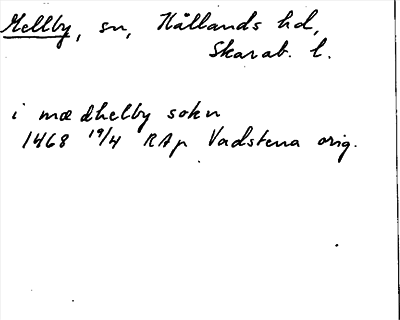 Mellby, sn, Kållands hd,
Skarab. l.
i mædhelby sokn
1468 19/4 RAp Vadstena orig.